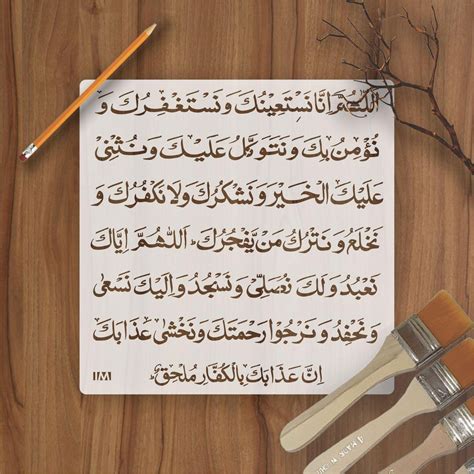 اَللّٰهُمَّ اِنَّا نَسْتَعِينُكَ وَنَسْتَغْفِرُكَ وَ
نُؤْمِنُ بِكَ وَنَتَوَكَّلُ عَلَيْكَ وَنُثْنِيْ
عَلَيْكَ الْخَيْرَ وَنَشْكُرُكَ وَلَا نَكْفُرُكَ وَ
نَخْلَعُ وَنَتْرُكُ مَنْ يَّفْجُرُكَ اَللّٰهُمَّ اِيَّاكَ
نَعْبُدُ وَلَكَ نُصَلِّيْ وَنَسْجُدُ وَاِلَيْكَ نَسْعٰى
وَنَحْفِدُ وَنَرْجُوْا رَحْمَتَكَ وَنَخْشٰى عَذَابَكَ
اِنَّ عَذَابَكَ بِالْكُفَّارِ مُلْحِقٌ
IM